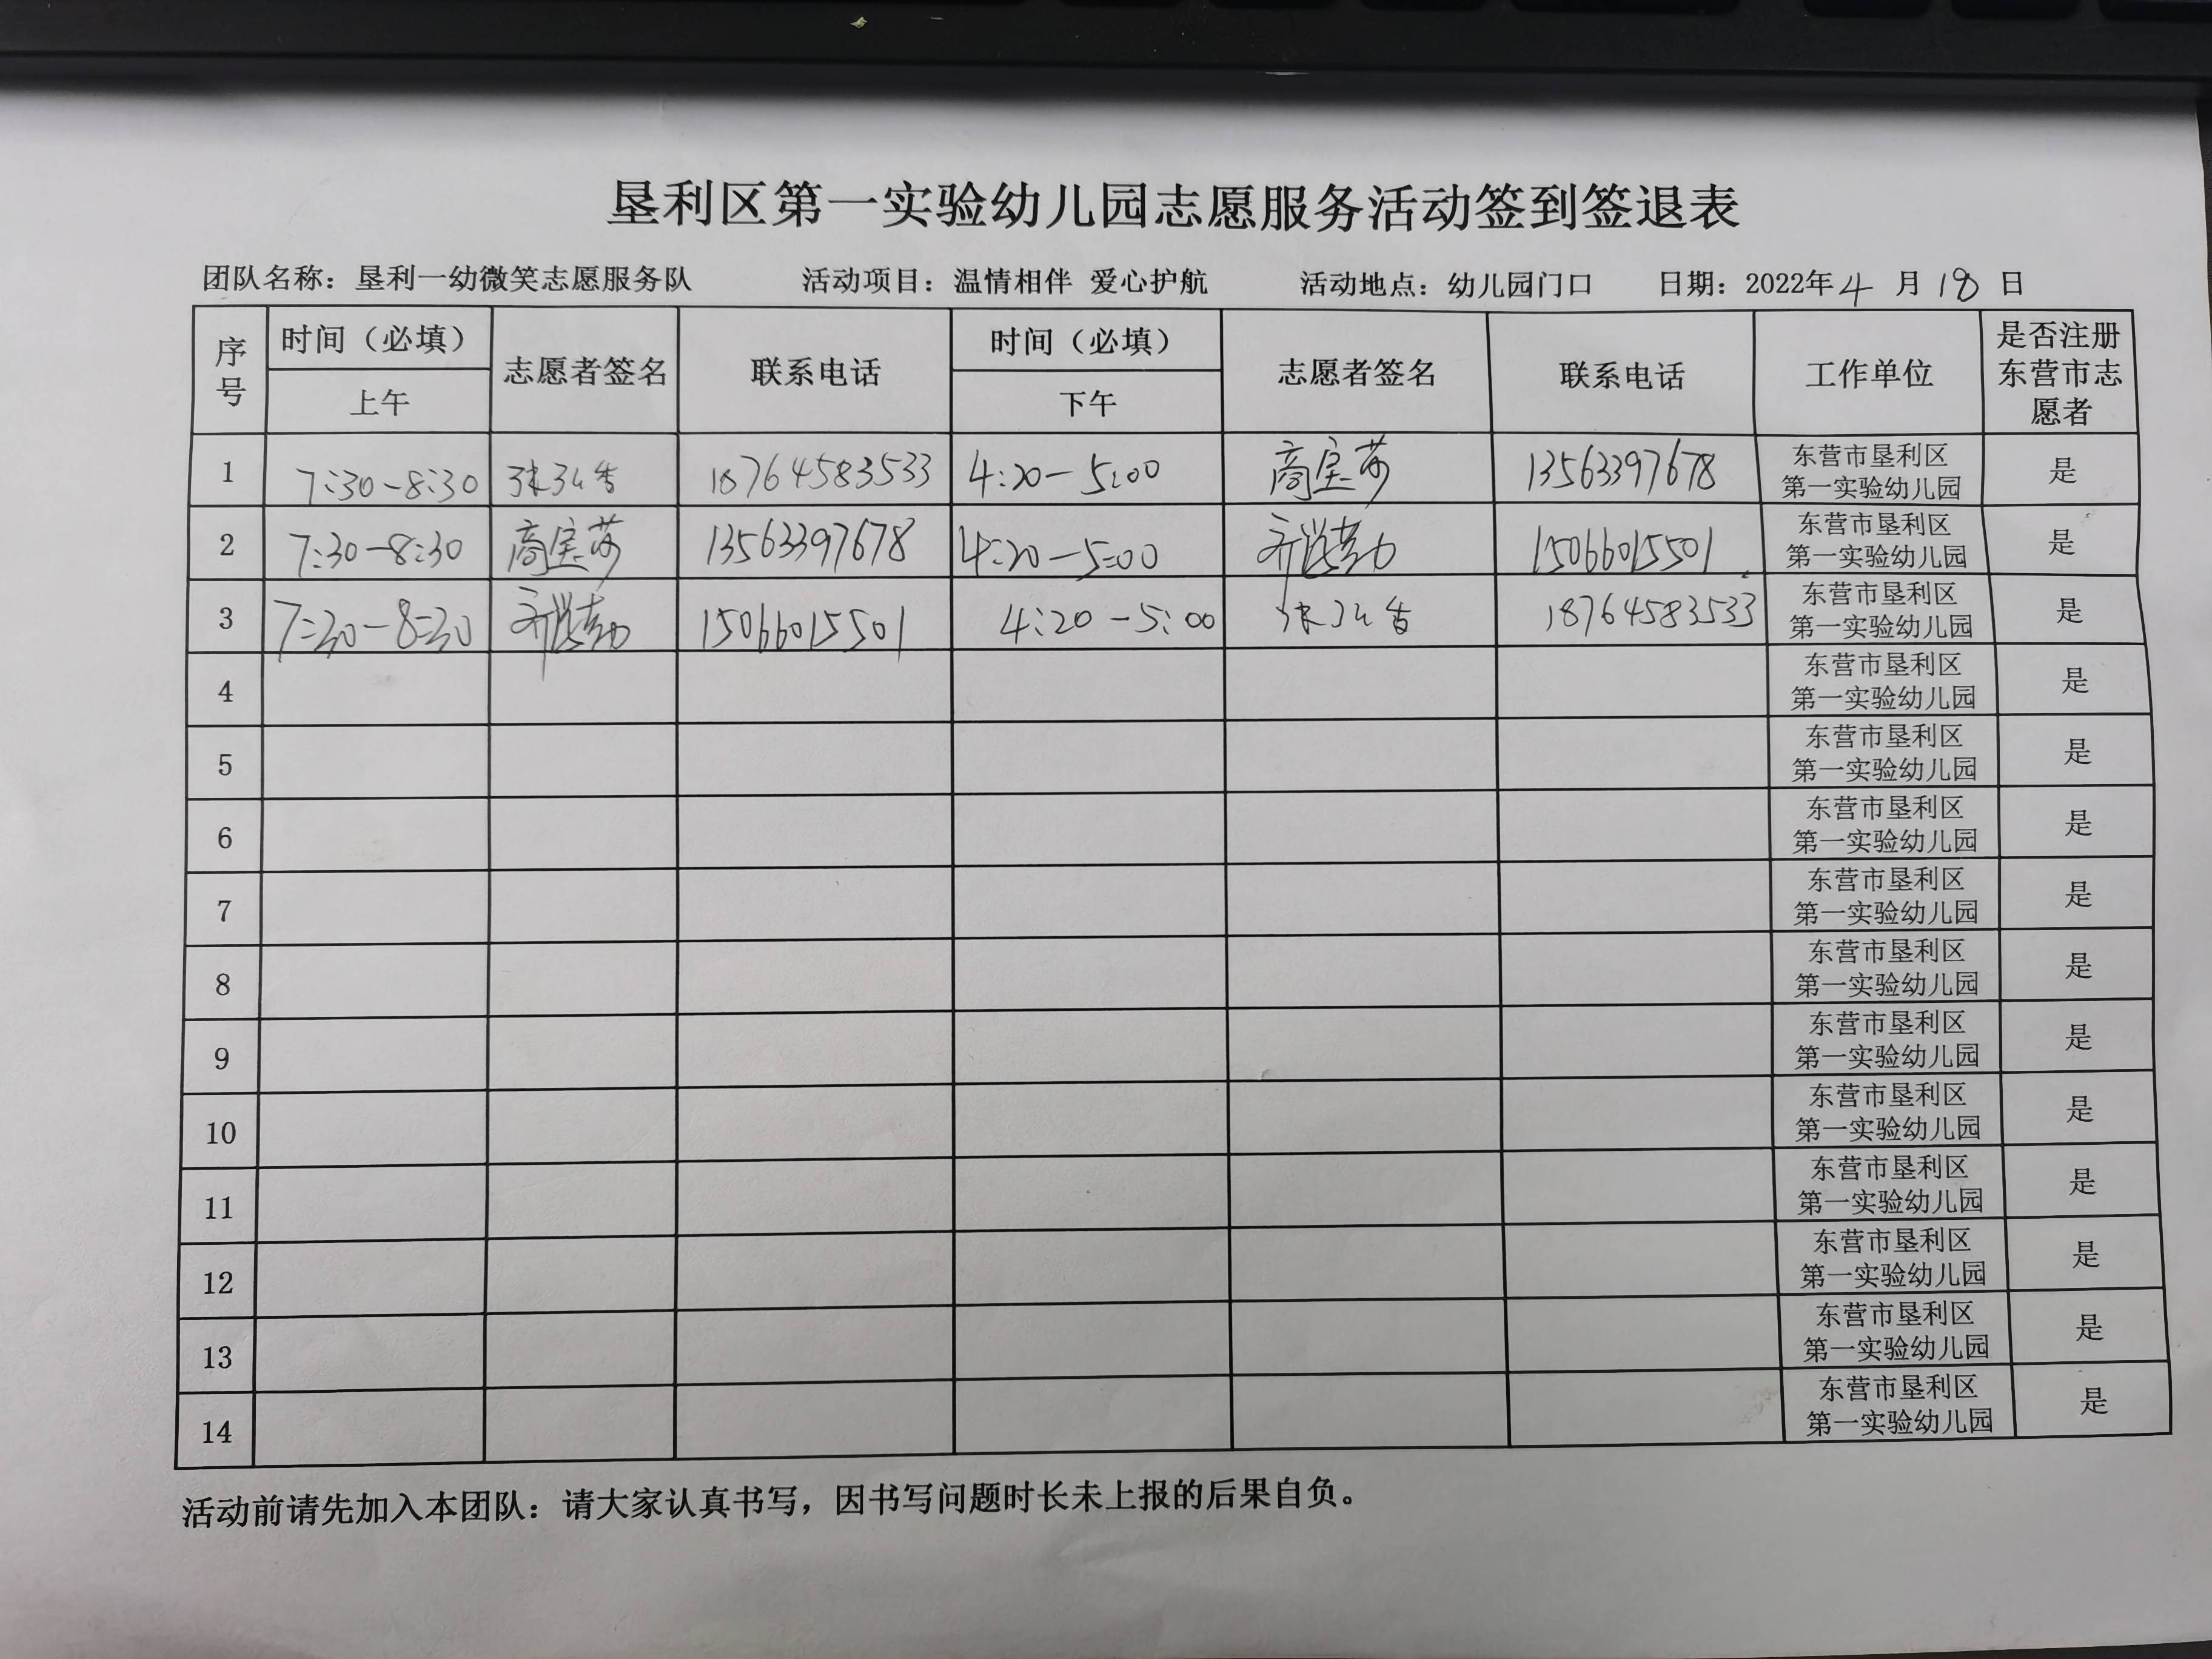 垦利区第一实验幼儿园志愿服务活动签到签退表
团队名称：垦利一幼微笑志愿服务队 活动项目：温情相伴 爱心护航 活动地点：幼儿园门口 日期：2022年4月18日
序号 时间（必填） 上午 志愿者签名 联系电话 时间（必填） 下午 志愿者签名 联系电话 工作单位 是否注册东营市志愿者
1 7:30-8:30 18764583533 4:20-5:00 商宝莎 13563397678 东营市垦利区第一实验幼儿园 是
2 7:30-8:30 商宝莎 13563397678 4:20-5:00 15066015501 东营市垦利区第一实验幼儿园 是
3 7:30-8:30 15066015501 4:20-5:00 18764583533 东营市垦利区第一实验幼儿园 是
4 东营市垦利区第一实验幼儿园 是
5 东营市垦利区第一实验幼儿园 是
6 东营市垦利区第一实验幼儿园 是
7 东营市垦利区第一实验幼儿园 是
8 东营市垦利区第一实验幼儿园 是
9 东营市垦利区第一实验幼儿园 是
10 东营市垦利区第一实验幼儿园 是
11 东营市垦利区第一实验幼儿园 是
12 东营市垦利区第一实验幼儿园 是
13 东营市垦利区第一实验幼儿园 是
14 东营市垦利区第一实验幼儿园 是
活动前请先加入本团队：请大家认真书写，因书写问题时长未上报的后果自负。